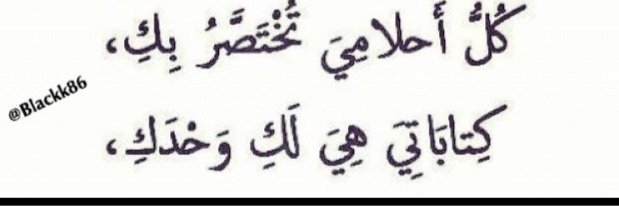 كُلُّ أَحلامِيَ تُخْتَصَّرُ بِكِ،
@Blackk86
كِتابَاتِيَ هِيَ لَكِ وَحْدَكِ،